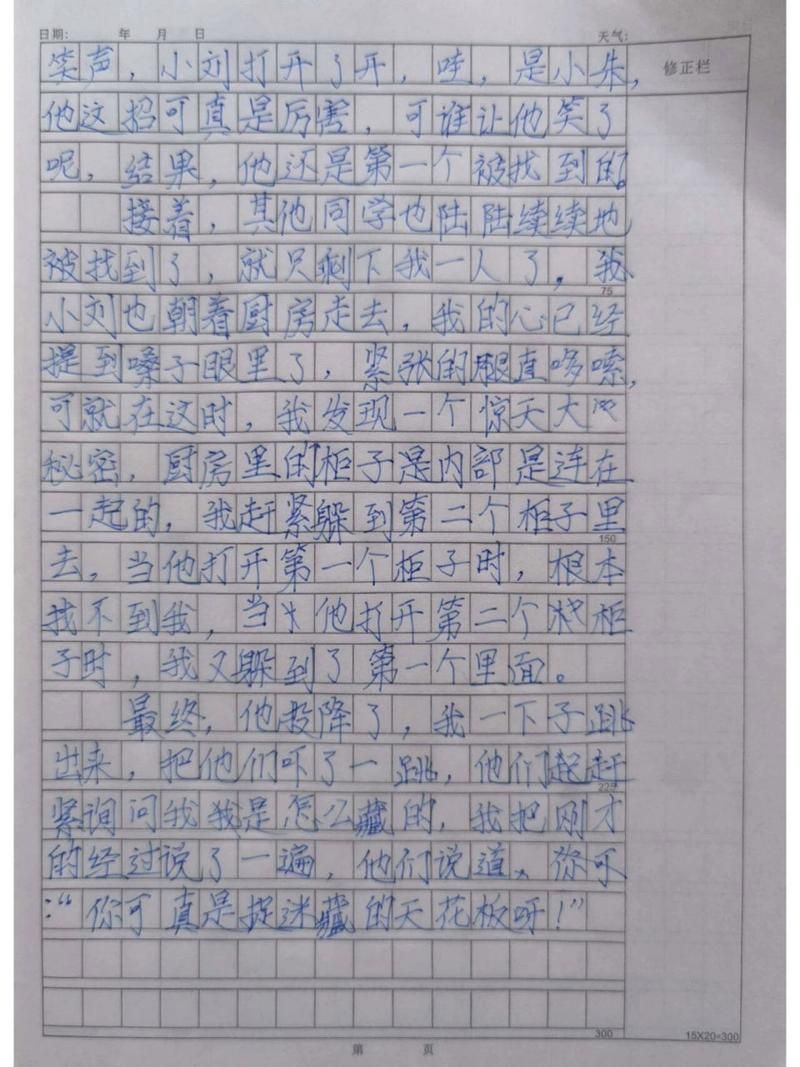 日期: 年 月 日 天气:
修正栏
笑声，小刘打开了开，哇，是小朱，
他这招可真是厉害，可谁让他笑了
呢，结果，他还是第一个被找到的。
接着，其他同学也陆陆续续地
被找到了，就只剩下我一人了，我
75
小刘也朝着厨房走去，我的心已经
提到嗓子眼里了，紧张的腿直哆嗦，
可就在这时，我发现一个惊天大
秘密，厨房里的柜子是内部是连在
一起的，我赶紧躲到第二个柜子里
150
去，当他打开第一个柜子时，根本
找不到我，当他打开第二个柜
子时，我又躲到了第一个里面。
最终，他投降了，我一下子跳
出来，把他们吓了一跳，他们起赶
225
紧询问我我是怎么藏的，我把刚才
的经过说了一遍，他们说道、你可
：“你可真是捉迷藏的天花板呀！”
300
15X20=300
第 页